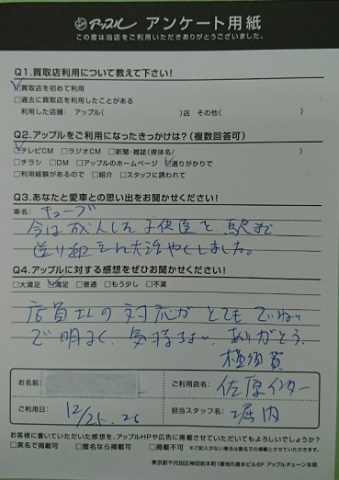 アップル アンケート用紙
この度は当店をご利用いただきありがとうございました。
Q1.買取店利用について教えて下さい!
□買取店を初めて利用
□過去に買取店を利用したことがある
利用した店舗: アップル( )店 その他( )
Q2.アップルをご利用になったきっかけは?(複数回答可)
□テレビCM □ラジオCM □新聞・雑誌(媒体名/ )
□チラシ □DM □アップルのホームページ □通りがかりで
□利用経験があるので □紹介 □スタッフに誘われて
Q3.あなたと愛車との思い出をお聞かせください!
車名: キューブ
今は成人した子供達を駅まで
送り迎えで大活やくしました。
Q4.アップルに対する感想をぜひお聞かせください!
□大満足 □満足 □普通 □もう少し □不満
店員さんの対応がとてもていねい
で明るく、気持ちよい、ありがとう。
横須賀
お名前:
ご利用店名: 佐原インター
ご利用日: 12/25.26
担当スタッフ名: 堀内
お客様に書いていただいた感想を、アップルHPや広告に掲載させていただいてもよろしいでしょうか?
□実名で掲載可 □匿名なら掲載可 □掲載不可 ※ご記入がない場合は匿名での掲載とさせていただきます。
東京都千代田区神田岩本町1番地
アップルチェーン本部